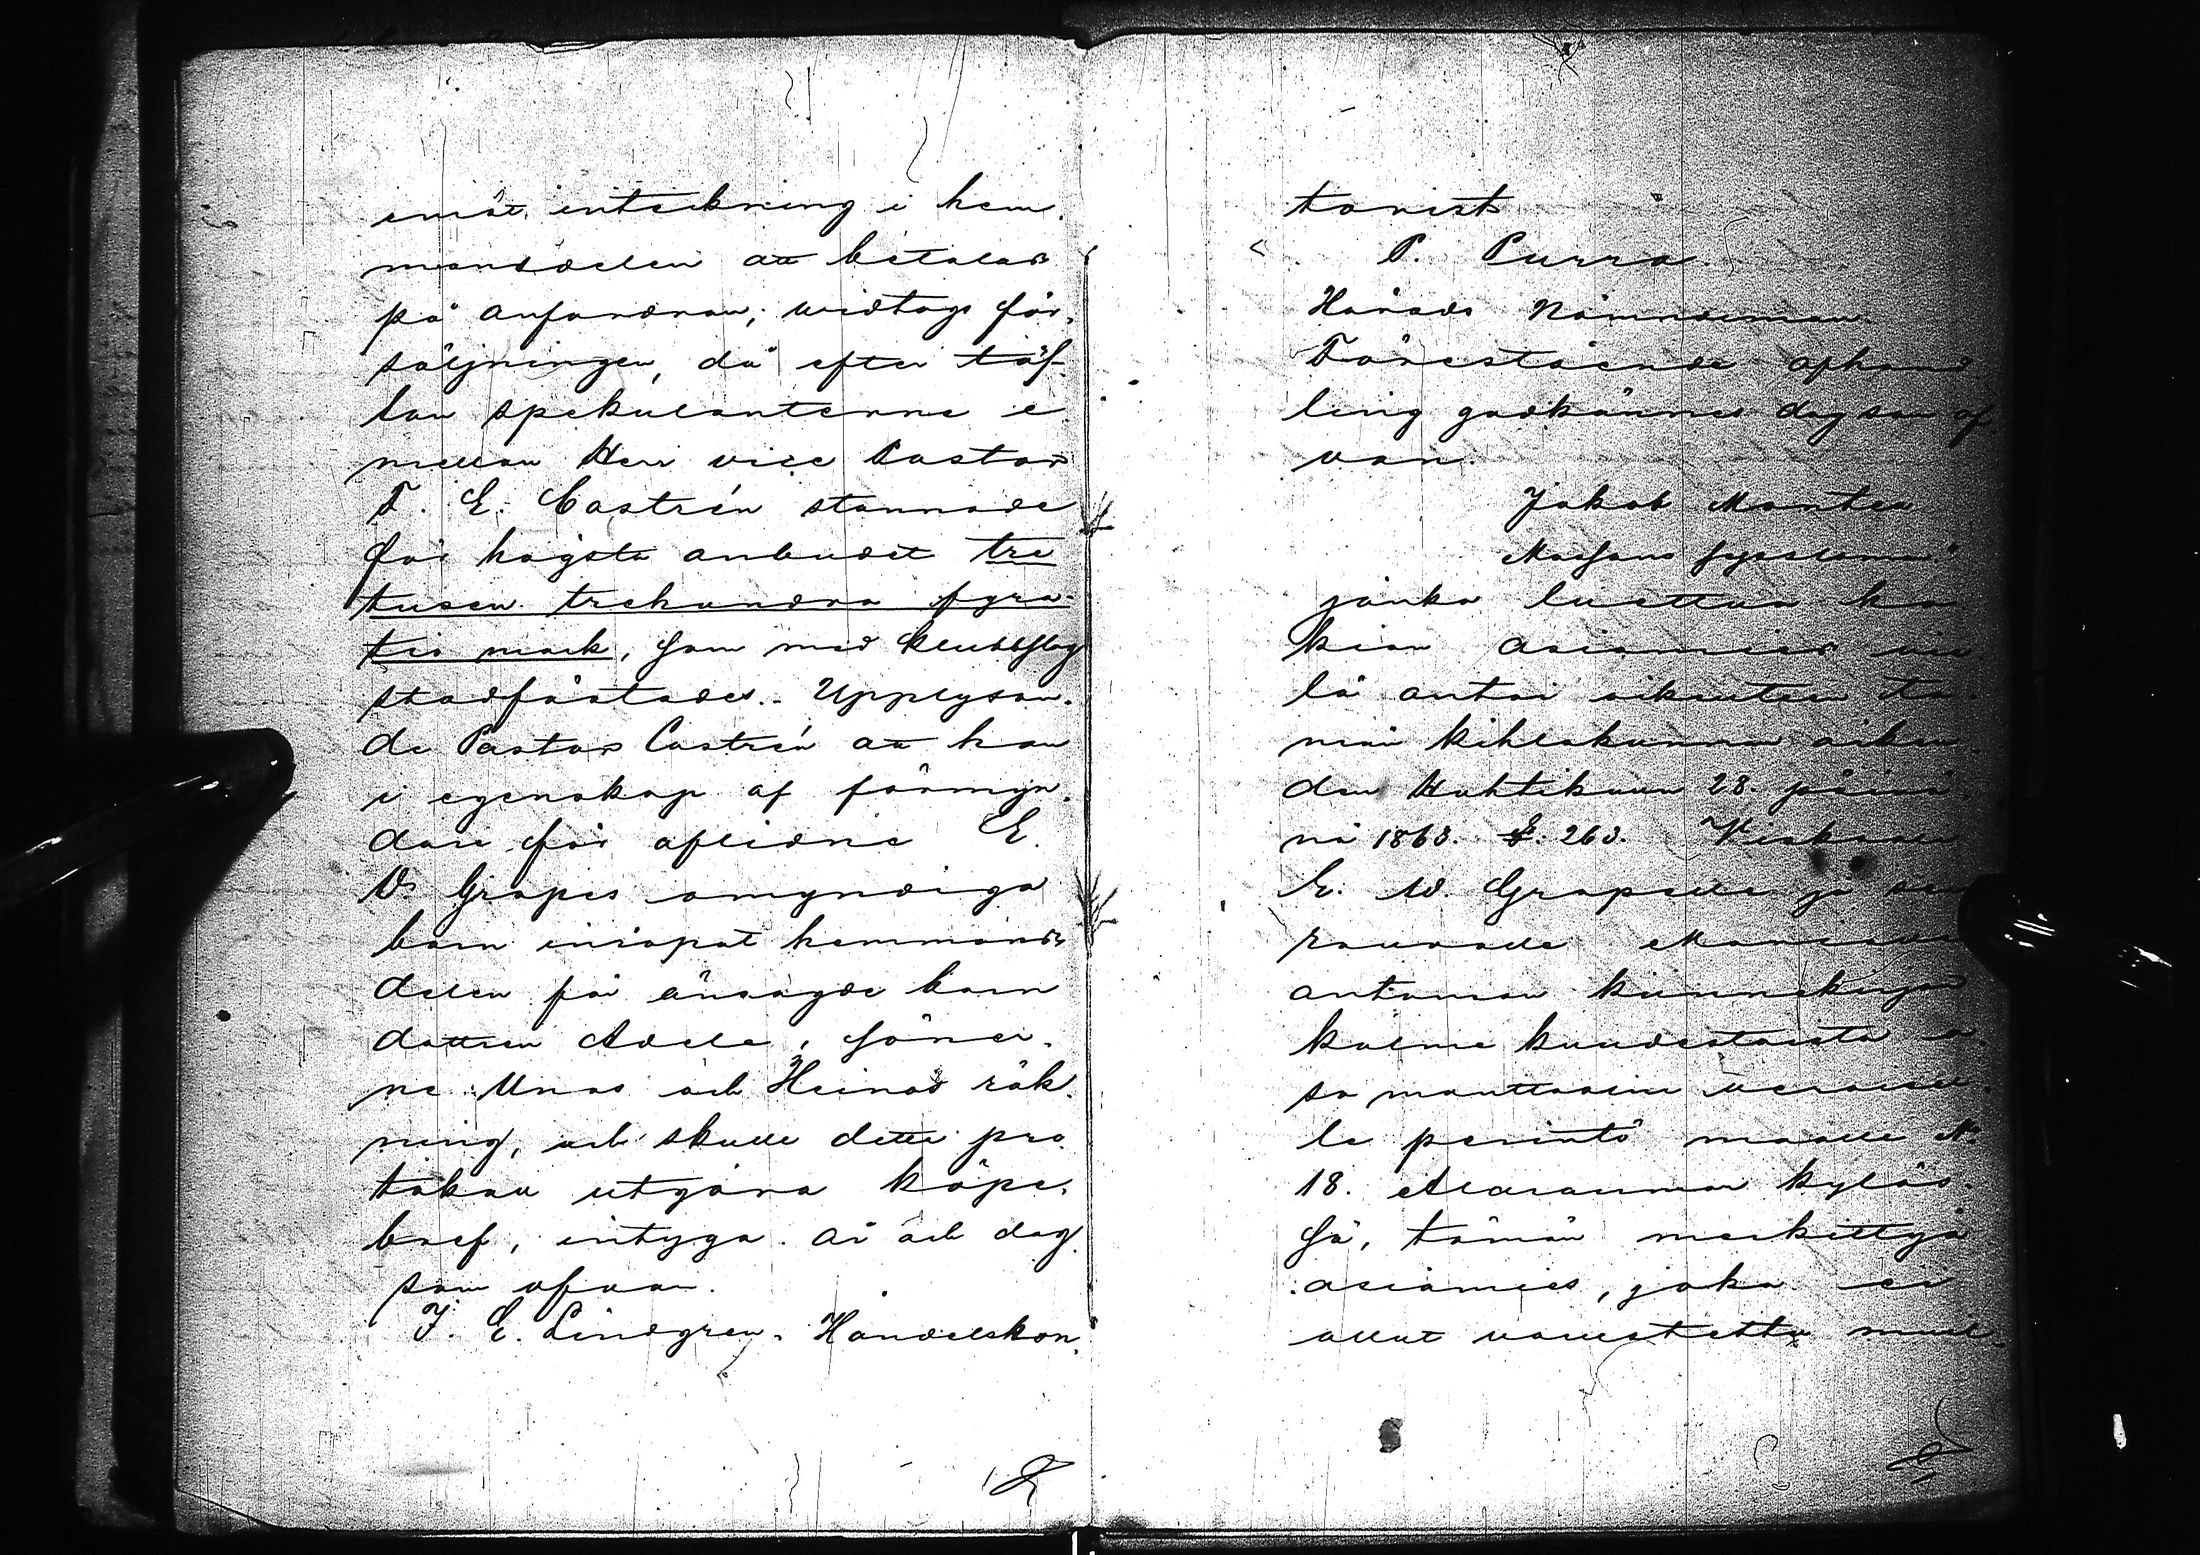 emot inteckning i hem-
mansdelen att betalas
på anfordran, vidtogs för-
säljningen, då efter täf-
lan spekulanterne e
mellan Herr vice Pastor
F. E. Castrén stannade
för högsta anbudet tre
tusen trehundra fyra-
tio mark, som med klubbslag
stadfästades. Upplysan-
de Pastor Castrén att han
i egenskap af förmyn-
dare för aflidne E.
V. Grapes omyndiga
barn inropat hemmans-
delen för ensagde barn
dottren Adele, söner-
ne Unas och Heinos räk-
ning, och skulle dette pro
tokoll utgöra köpe-
bref, intyga. År och dag
som ofvan.
J. E. Lindgren. Handelskon-
torist
P. Purra.
Härads Nämndeman.
Förestående afhand
ling godkännes dag som of
van.
Jakob Monten
jonka luettua ha
kian asiamies
lä antoi oikeuteen ta
män kihlakunnan oikeu-
den Huhtikuun 28. päivä
nä 1863. §. 263. Viskaali
E. W. Grapelle ja
rouvalle
antaman kiinnekirjan
kolme kuudestoista o
sa manttaalin veroisel-
le perintö maalle N:o
18. Alaraumon kyläs-
sä, tämän merkittyä
asiamies, joka ei
ollut varustettu muil